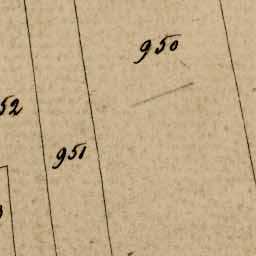 950
52
951